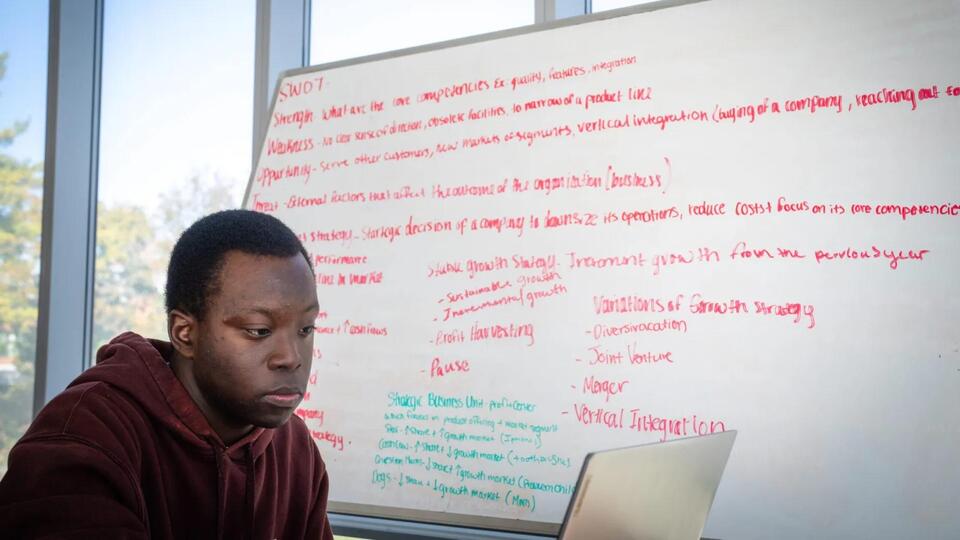 SWOT-
Strength- What are the core competencies Ex: quality, features, integration
Weakness- No clear sense of direction, obsolete facilities, to narrow of a product line
Opportunity- Serve other customers, new markets or segments, vertical integration (buying of a company, reaching out to
Threat- External factors that affect the outcome of the organization (business)
strategy- Startegic decision of a company to downsize its operations, reduce costs + focus on its core competencies
performance
line in market
Stable growth Strategy- Increment growth from the pervious year
- Sustainable growth
- Incremental growth
- Profit Harvesting
- Pause
Variations of Growth strategy
- Diversivacation
- Joint Venture
- Merger
- Vertical Integration
↑ cash flows
strategy.
Strategic Business Unit- profit center
which focuses on product offering + market segment
↑ share + ↑ growth market
Cashcow- ↑ share + ↓ growth market
Question Marks- ↓ share + ↑ growth market (Problem Child
Dogs- ↓ share + ↓ growth market